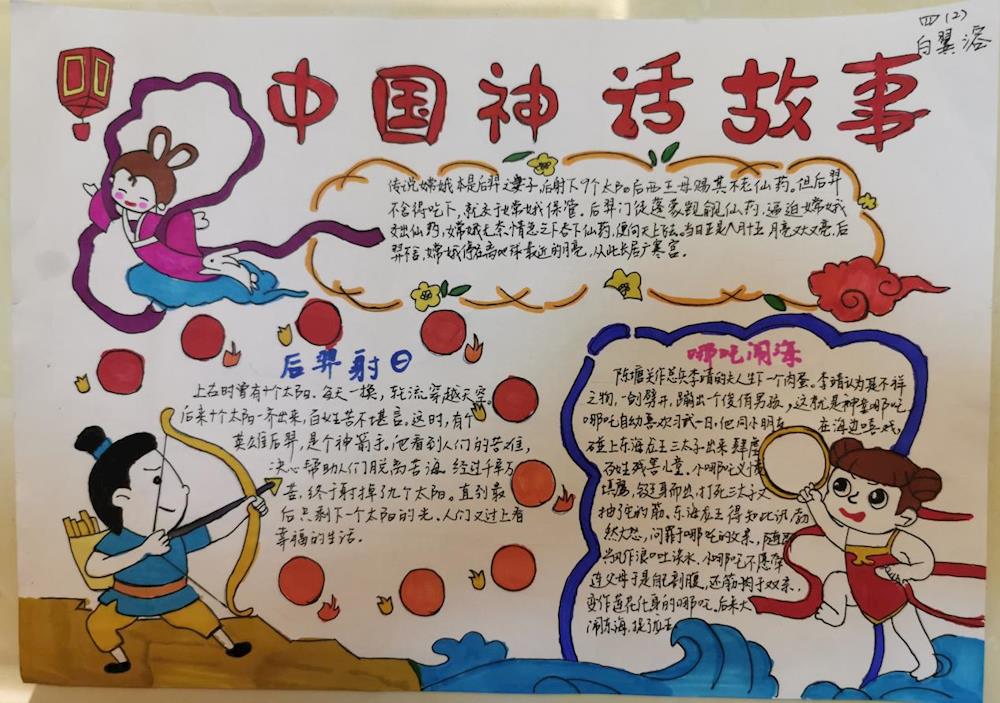 四(2)
白翼溶
中国神话故事
传说嫦娥本是后羿之妻子,后羿射下9个太阳后西王母赐其不老仙药。但后羿
不舍得吃下,就交于嫦娥保管。后羿门徒蓬蒙觊觎仙药,逼迫嫦娥
交出仙药,嫦娥无奈情急之下吞下仙药,便向天上飞去。当日正是八月十五,月亮又大又亮,后
羿不舍,嫦娥停在离地球最近的月亮,从此长居广寒宫。
后羿射日
上古时曾有十个太阳、每天一换,轮流穿越天空。
后来十个太阳一齐出来,百姓苦不堪言,这时,有个
英雄后羿,是个神箭手。他看到人们的苦难,
决心帮助人们脱离苦海,经过千辛万
苦,终于射掉了九个太阳。直到最
后只剩下一个太阳的光。人们又过上着
幸福的生活。
哪吒闹海
陈塘关作总兵李靖的夫人生下一个肉蛋。李靖认为是不祥
之物,一剑劈开,蹦出一个俊俏男孩,这就是神童哪吒
哪吒自幼喜欢习武一日,他同小朋友在海边嬉戏,
碰上东海龙王三太子出来肆虐
百姓残害儿童。小哪吒义愤
填膺,挺身而出,打死三太子又
抽了他的筋。东海龙王得知此讯,勃
然大怒,问罪于哪吒的父亲,随即
兴风作浪口吐洪水,小哪吒不愿牵
连父母于是自己剖腹,还筋肉于双亲,
变作莲花化身的哪吒。后来大
闹东海,捉了龙王